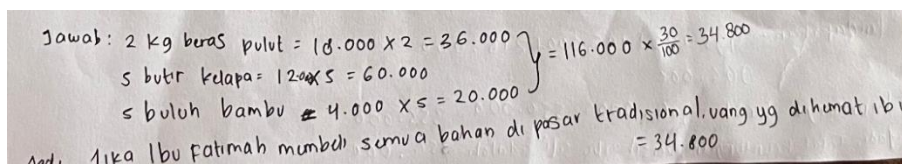 Jawab: 2 kg beras pulut = 18.000 x 2 = 36.000
5 butir kelapa = 12.000 x 5 = 60.000
5 buluh bambu = 4.000 x 5 = 20.000
} = 116.000 x 30/100 = 34.800
Jadi, Jika Ibu Fatimah membeli semua bahan di pasar tradisional, uang yg dihemat ibu
= 34.800